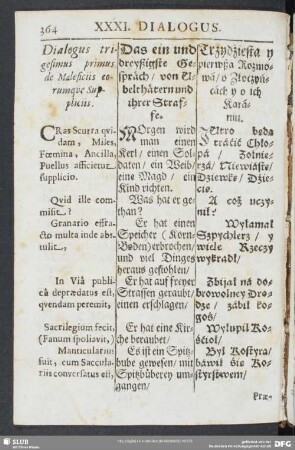 364 XXXI. DIALOGUS.
Dialogus tri-
gesimus primus
de Maleficiis eo-
rumque Sup-
pliciis.
CRas Scurra qui-
dam, Males,
Fœmina, Ancilla,
Puellus afficietur
supplicio.
Quid ille com-
misit?
Granario effra-
cto multa inde abs-
tulit,
In Viâ publi-
câ deprædatus est,
quendam peremit,
Sacrilegium fecit,
(Fanum spoliavit,)
Manticularius
fuit, cum Saccula-
riis conversatus est,
Das ein und
dreyßigste Ge-
spräch / von
und
ihrer Straf-
fe.
MOrgen wird
man einen
Kerl / einen Sol-
daten / ein Weib /
eine Magd / ein
Kind richten.
Was hat er ge-
than?
Er hat einen
Speicher (Korn-
Boden) erbrochen /
und viel Dinges
heraus gestohlen /
Er hat auf freyer
Strassen geraubt /
einen erschlagen /
Er hat eine Kir-
che beraubet /
Es ist ein Spitz-
bube gewesen / mit
Spitzbüberey um-
gangen /
Trzydziesta y
pierwsza Rozmo-
wa / o Złoczyń-
cach y o ich
Kara-
niu.
JUtro będą
tracić Chło-
pa / Żołnie-
rza / Niewiastę /
Dziewkę / Dzie-
cię.
A coż uczy-
nił?
Wyłamał
Szpychlerz / y
wiele Rzeczy
wykradł /
Zbijał na do-
browolney Dro-
dze / zabił ko-
goś /
Wyłupił Ko-
ścioł /
Był Kostyrą /
bawił się Ko-
styrstwem /
Præ-
SLUB